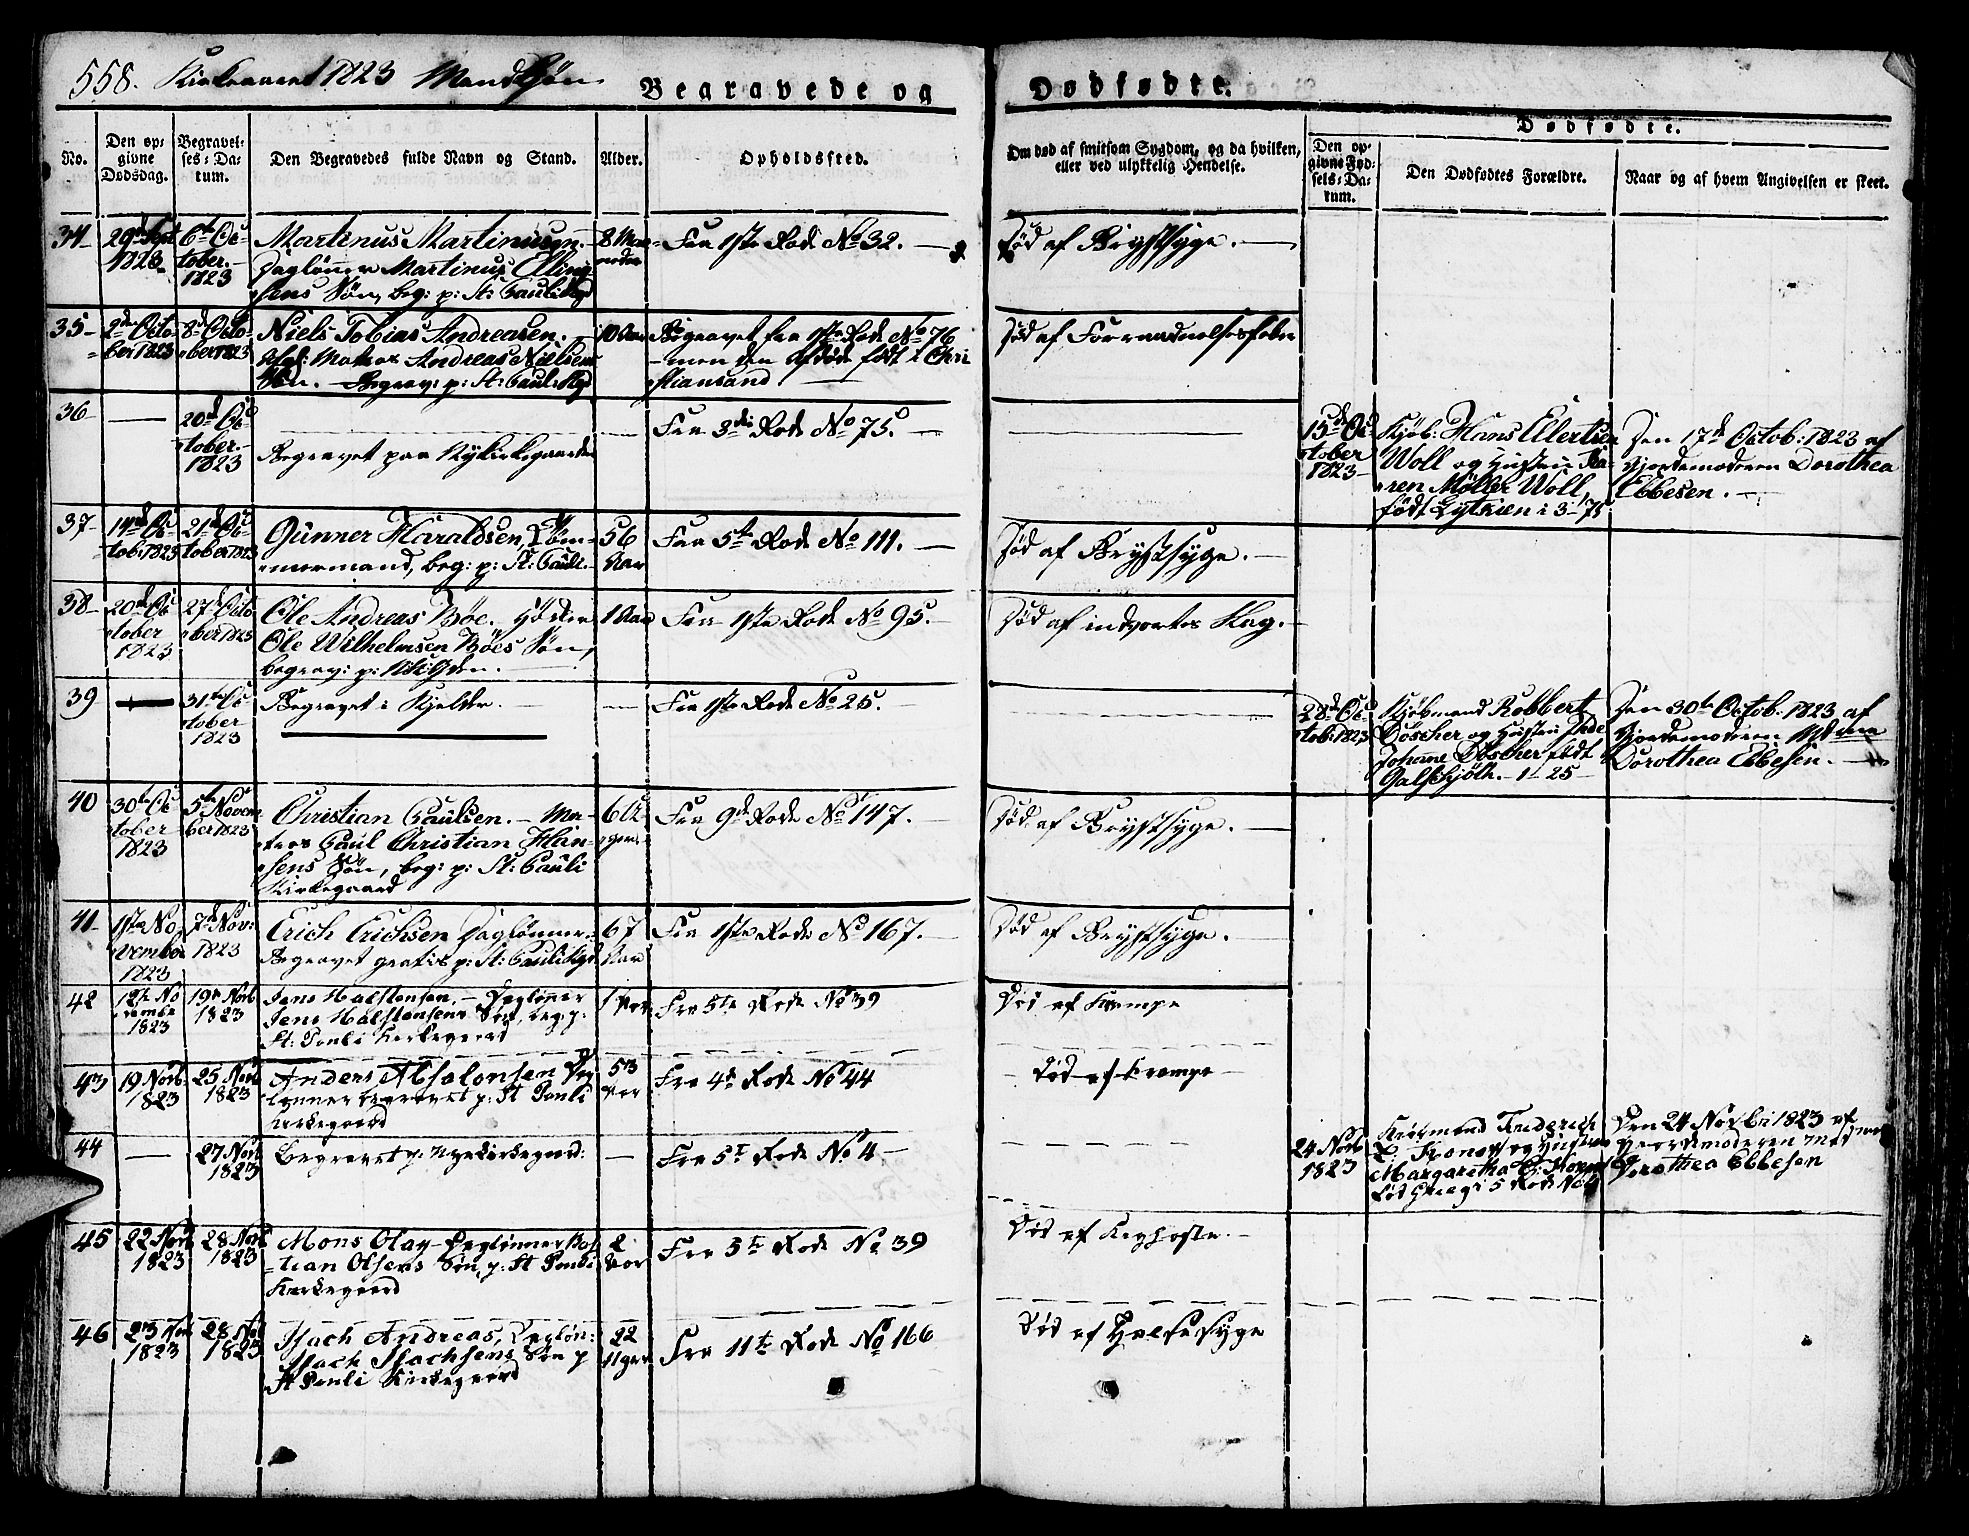 558. Kirkeaaret 1823 Mandkjøn
Begravede og
Dødfødte.
No.
Den opgivne Dødsdag.
Begravelses-Datum.
Den Begravedes fulde Navn og Stand.
Alder.
Opholdssted.
Om død af smitsom Sygdom, og da hvilken, eller ved ulykkelig Hendelse.
Dødfødte.
Den opgivne Fødsels-Datum.
Den Dødfødtes Forældre.
Naar og af hvem Angivelsen er skeet.
34
29de Sept
1823
6te Oc-
tober.
1823
Martinus Martinusen.
Dagløner Martinus Elling-
sens Søn, beg: p: St: Pauli Kgd
8 Maa-
neder
Fra 1ste Rode No 32.
Død af Brystsyge.
35
2de Octo-
ber 1823
8de Octo-
ber 1823
Niels Tobias Andreasen.
Matros Andreas Nielsens
Søn. Begrav: p: St: Paul: Kgd
10 Aar
Begravet fra 1ste Rode No 76
men den Afdøde født i Chri
stiansand
Død af Forraadnelsesfeber
36
20de Oc-
tober
1823
Begravet paa Nykirkegaarden
Fra 3die Rode No 75.
15de Oc-
tober
1823
Kjøb: Hans Eilertsen
Woll og Hustru Ka-
ren Møller Woll,
født Lytkien i 3-75
Den 17de Octob: 1823 af
Gjordemoderen Dorothea
Ebbesen.
37
14de Oc-
tob: 1823
21de Oc-
tober 1823
Gunner Haraldsen, Tøm-
mermand, beg: p: St: Pauli
56
Aar
Fra 5te Rode No 111.
Død af Brystsyge.
38
20de Oc
tober
1823
27de Octo
ber 1823
Ole Andreas Bøe.
Ole Wilhelmsen Bøes Søn,
1 Aar
Fra 1ste Rode No 95.
Død af indvortes Slag.
39
31te Oc
tober
1823
Begravet i Kjelder.
Fra 1ste Rode No 25.
28de Oc-
tob: 1823
Kjøbmand Robbert
Döscher og Hustru
Johanne Döscher født
1-25
Den 30te Octob. 1823 af
Gjordemoderen Madame
Dorothea Ebbesen.
40
30te Oc
tober
1823
5te Novem
ber 1823
Christian Paulsen. Ma-
tros Paul Christian Han-
sens Søn, beg: p: St: Pauli
Kirkegaard
6 U-
ger
Fra 9de Rode No 147.
Død af Brystsyge.
41
1ste No-
vember
1823
7de Nov:
1823
Erich Erichsen Dagløner.
Begravet gratis p: St: Pauli Kgd
67
Aar
Fra 1ste Rode No 167.
Død af Brystsyge.
42
12te No
vembr
1823
19de Novb
1823
Jens Halstensen. Dagløner
Jens Halstensens Søn, beg: p:
St: Pauli Kirkegaard
1 Aar
Fra 5te Rode No 39
Død af Krampe
43
19 Novb
1823
25 Novb
1823
Anders Absalonsen Dag
lønner begravet p: St Pauli
Kirkegaard
53
Aar
Fra 4de Rode No 44
Død af Krampe
44
27 Novb
1823
Begravet p: Nyekirkegaard:
Fra 5te Rode No 4
24 Novb
1823
Kjøbmand Friderich
L: Konow og Hustru
Margaretha C: Konow
fød Grieg i 5 Rode No 4
Den 24 Novb: 1823 af
Gjordemoderen Mad
Dorothea Ebbesen
45
22 Novb
1823
28 Novb
1823
Mons Olay Daglønner Bas-
tian Olsens Søn, p: St Pauli
Kirkegaard
2
Aar
Fra 5te Rode No 39
Død af Kighoste.
46
23 Nov
1823
28 Nov
1823
Isach Andreas, Dagløn:
Isach Isachsens Søn p
St Pauli Kirkegaard
22
Uger
Fra 11te Rode No 166
Død af Halssyge